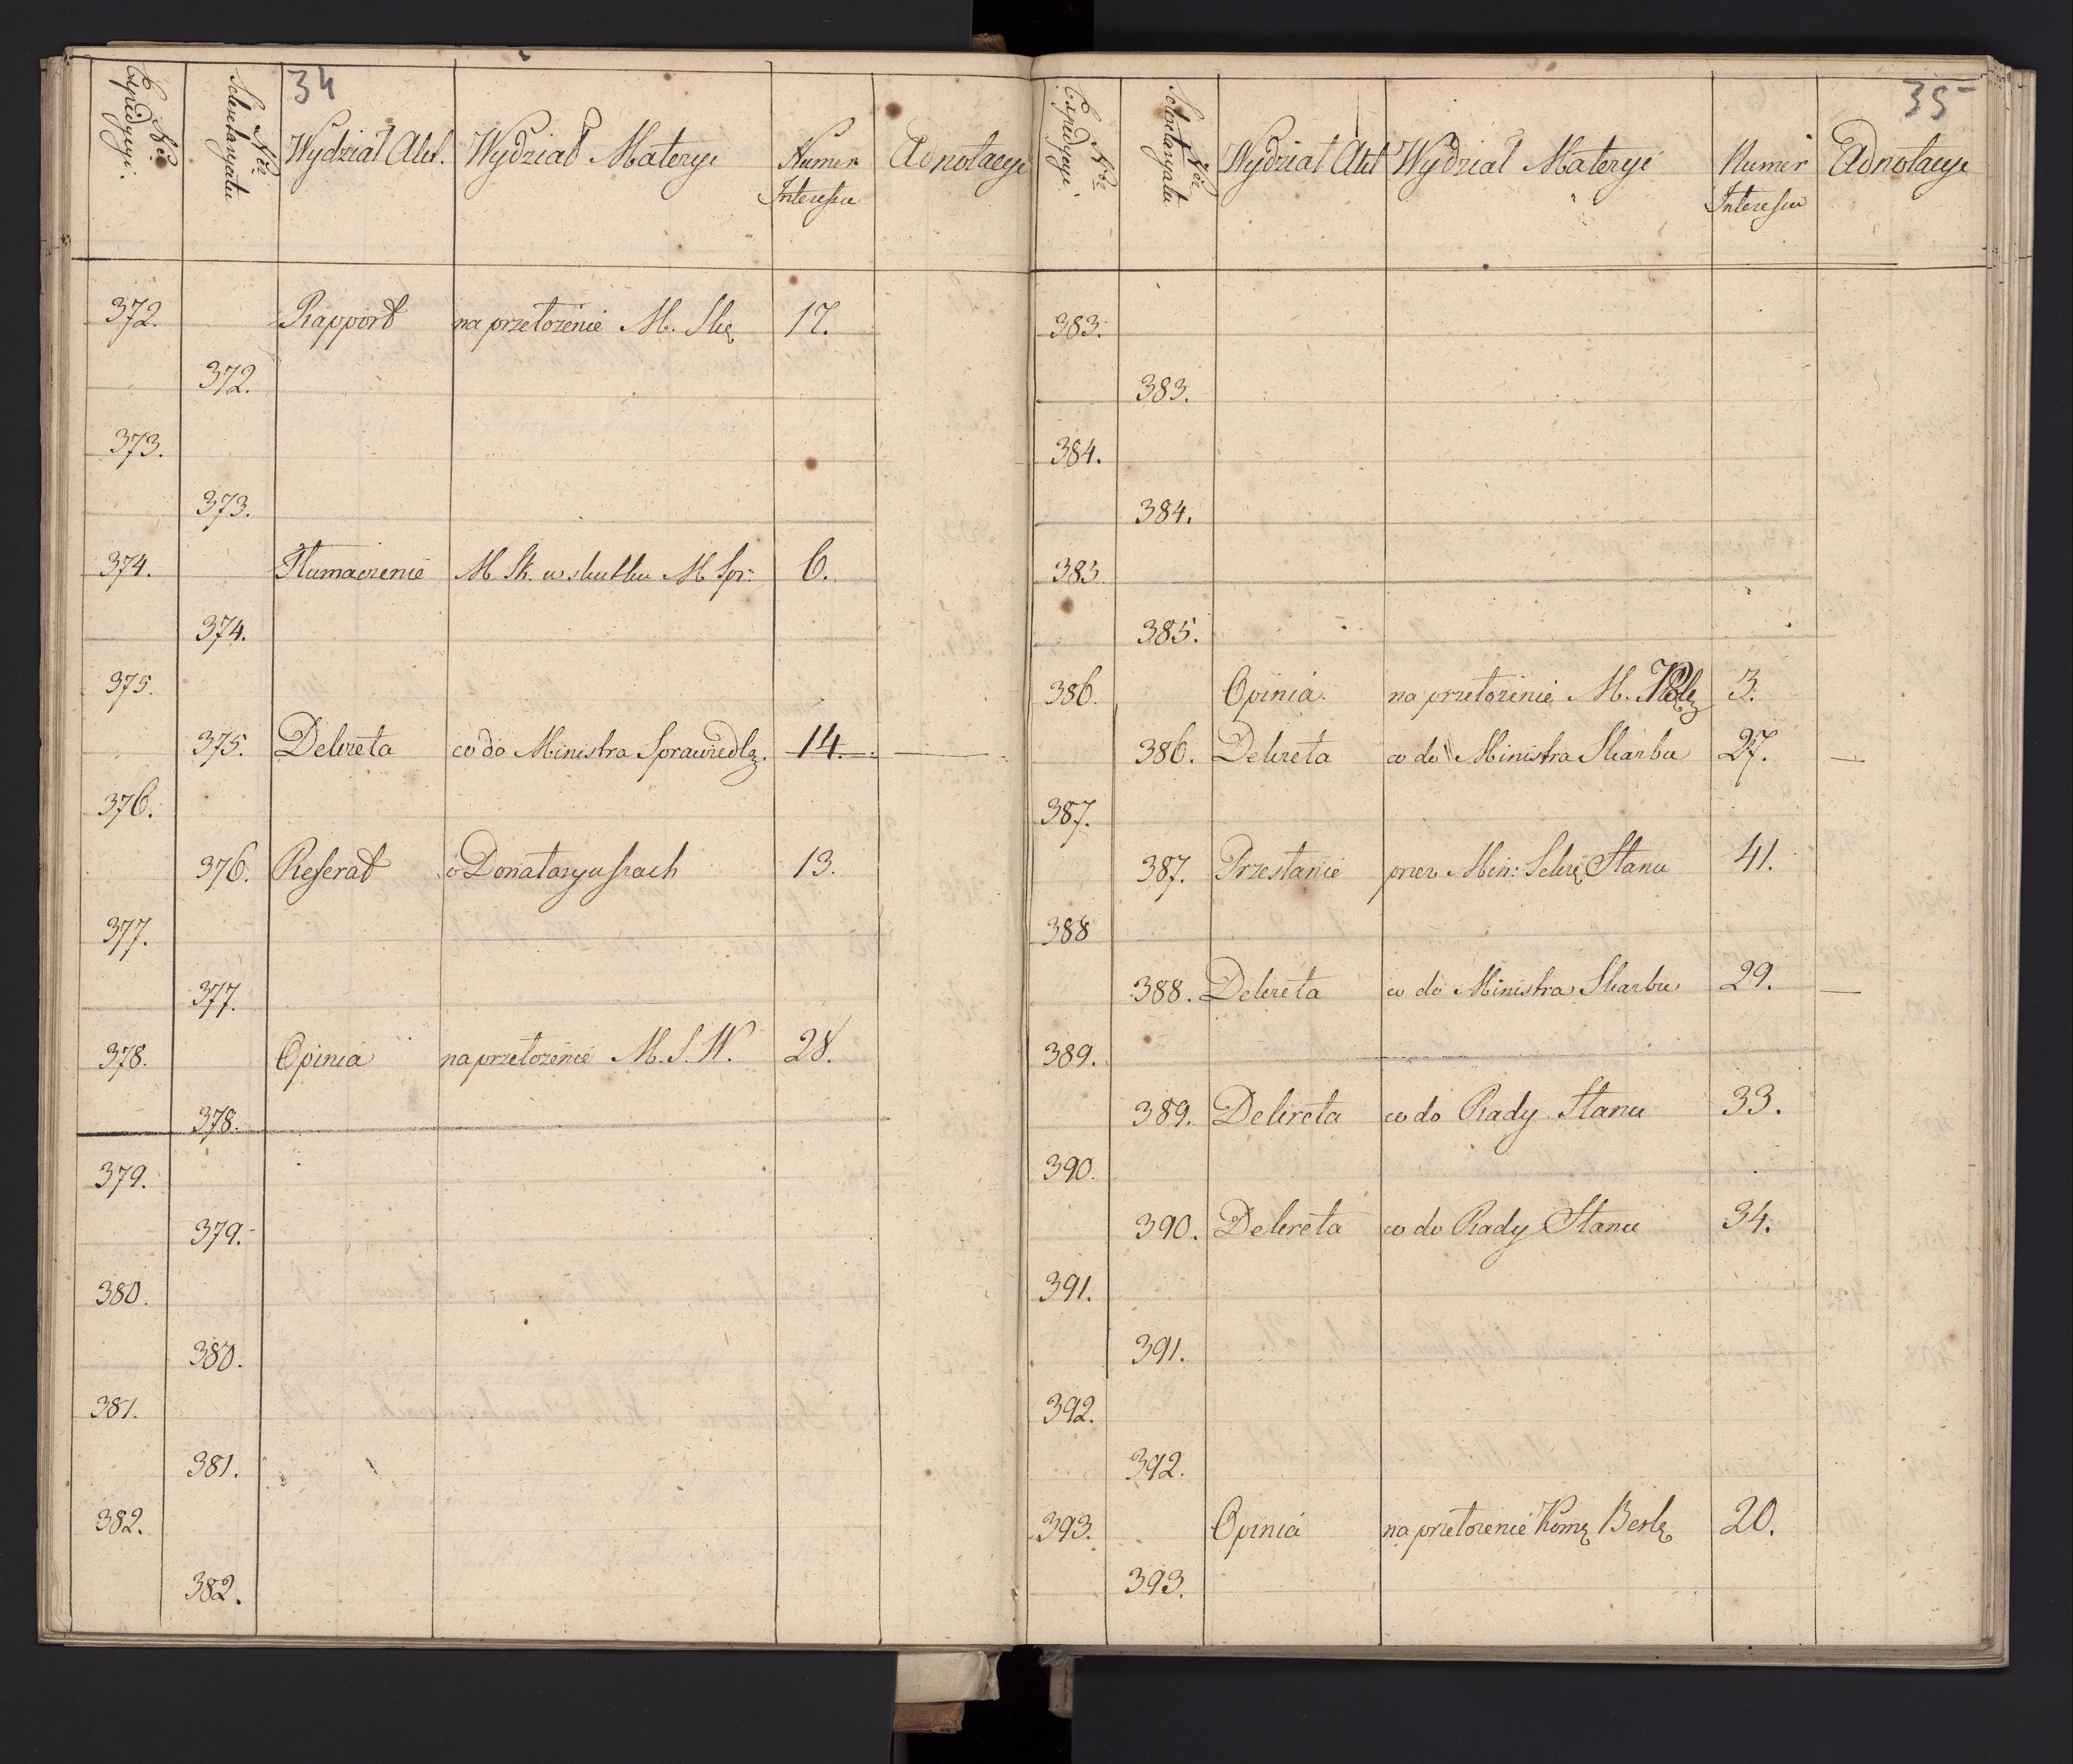 34
Nro Expedycyi. Nro Sekretaryatu Wydział Akt. Wydział Materyi Numer Interessu Adnotacye
372. Rapport na przełożenie M. Skę 17.
372.
373.
373.
374. Tłumaczenie M Sk. w skutku M Spr: 6.
374.
375.
375. Dekreta co do Ministra Sprawiedlę. 14.
376.
376. Referat o Donataryuszach 13.
377.
377.
378. Opinia na przełożenie M. S. W. 28.
378.
379.
379.
380.
380.
381.
381.
382.
382.
35
Nro Expedycyi. Nro Sekretaryatu Wydział Akt Wydział Materyi Numer Interessu Adnotacye
383.
383.
384.
384.
383
385.
386. Opinia. na przełożenie M. 3.
386. Dekreta co do Ministra Skarbu 27. —
387.
387. Przesłanie przez Min: Sekrę Stanu 41.
388
388. Dekreta co do Ministra Skarbu 29. —
389.
389. Dekreta co do Rady Stanu 33.
390.
390. Dekreta co do Rady Stanu 34.
391.
391.
392.
392.
393. Opinia na przełożenie Komę 20.
393.